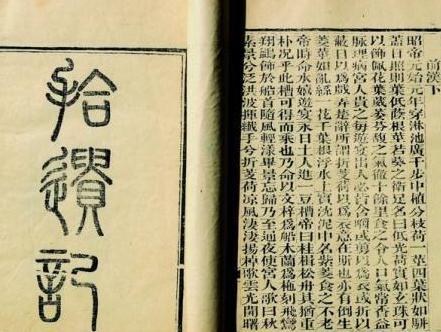 前漢下
昭帝元始元年穿淋池廣千步中植分枝荷一莖四葉狀如駢
蓋日照則葉低蔭根莖若葵之衛足名曰低光荷實如玄珠可
以飾佩花葉葳萎芬馥之氣徹十餘里食之令人口氣常香益
脉理病宮人貴之每遊宴出入必皆含嚼或剪以爲衣或折以
蔽日以爲戲弄楚辭所謂折芰荷以爲衣意在斯也亦有倒生
菱莖如亂絲一花千葉根浮水上實沉泥中名紫菱食之不老
帝時命水嬉遊宴永日土人進一豆槽帝曰桂楫松舟其猶重
朴況乎此槽可得而乘也乃命以文梓爲船木蘭爲柂刻飛鸞
翔鷁飾於船首隨風輕漾畢景忘歸乃至通夜使宮人歌曰秋
素景兮泛洪波揮纖手兮折芰荷涼風淒淒揚棹歌雲光開曙
拾遺記